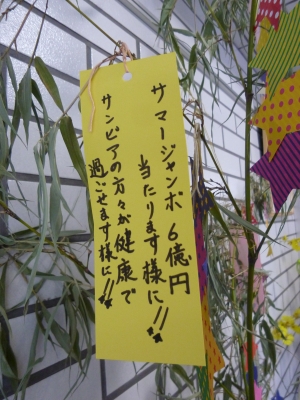 サマージャンボ 6億円
当たります様に!!
サンピアの方々が健康で
過ごせます様に!!